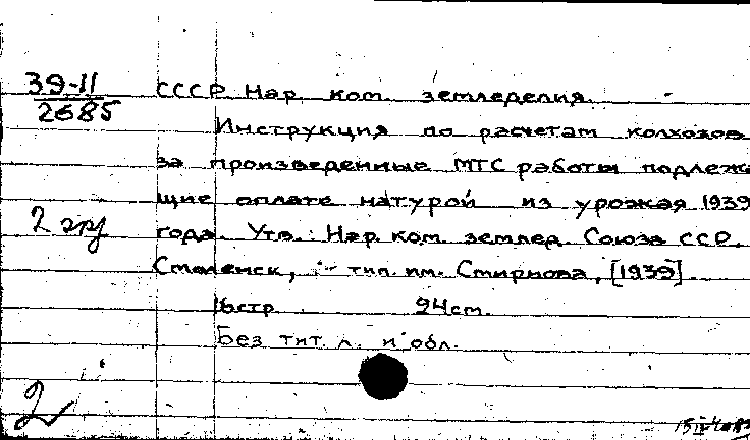 39-11
2685
СССР Нар. ком. земледелия.
Инструкция по расчетам колхозов
за произведенные МТС работы подлежа
щие оплате натурой из урожая 1939
года. Утв.: Нар. ком. землед. Союза ССР.
Смоленск, тип. им. Смирнова, [1939].
стр. 24см.
Без тит. л. и обл.
2